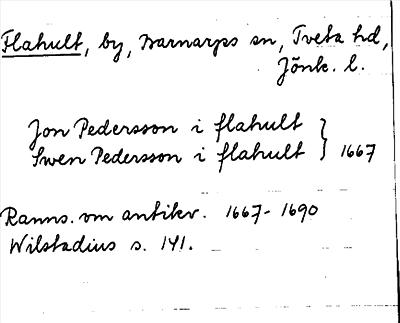 Flahult, by, Barnarps sn, Tveta hd,
Jönk. l.
Jon Pedersson i flahult
Swen Pedersson i flahult } 1667
Ranns. om antikv. 1667-1690
Wilstadius s. 141.